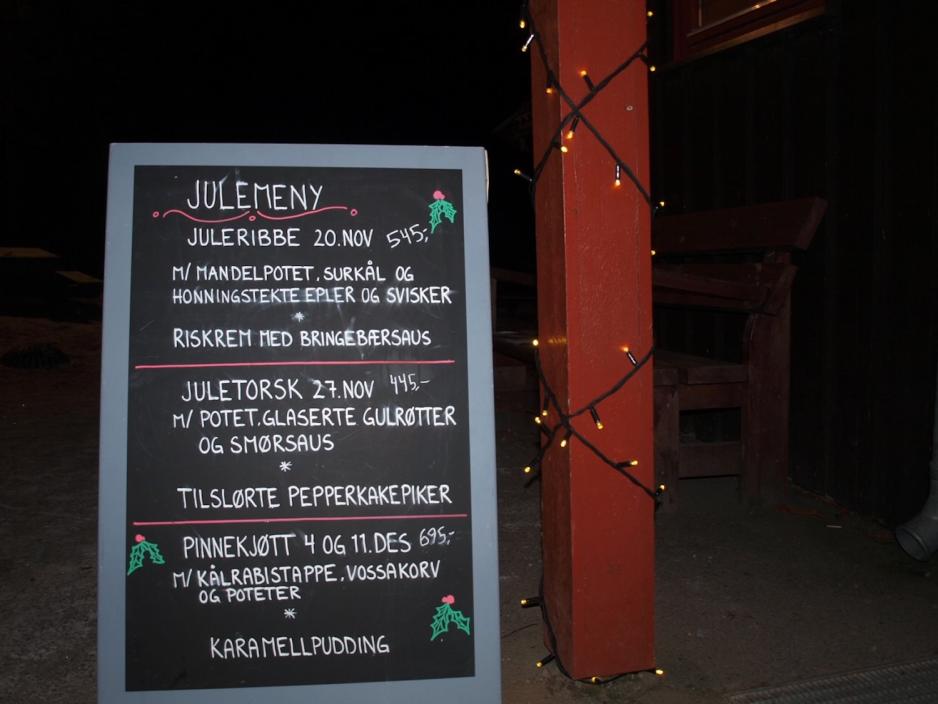 JULEMENY
JULERIBBE 20.NOV 545,-
M/ MANDELPOTET, SURKÅL OG
HONNINGSTEKTE EPLER OG SVISKER
*
RISKREM MED BRINGEBÆRSAUS
JULETORSK 27.NOV 445,-
M/ POTET, GLASERTE GULRØTTER
OG SMØRSAUS
*
TILSLØRTE PEPPERKAKEPIKER
PINNEKJØTT 4 OG 11.DES 695,-
M/ KÅLRABISTAPPE, VOSSAKORV
OG POTETER
*
KARAMELLPUDDING